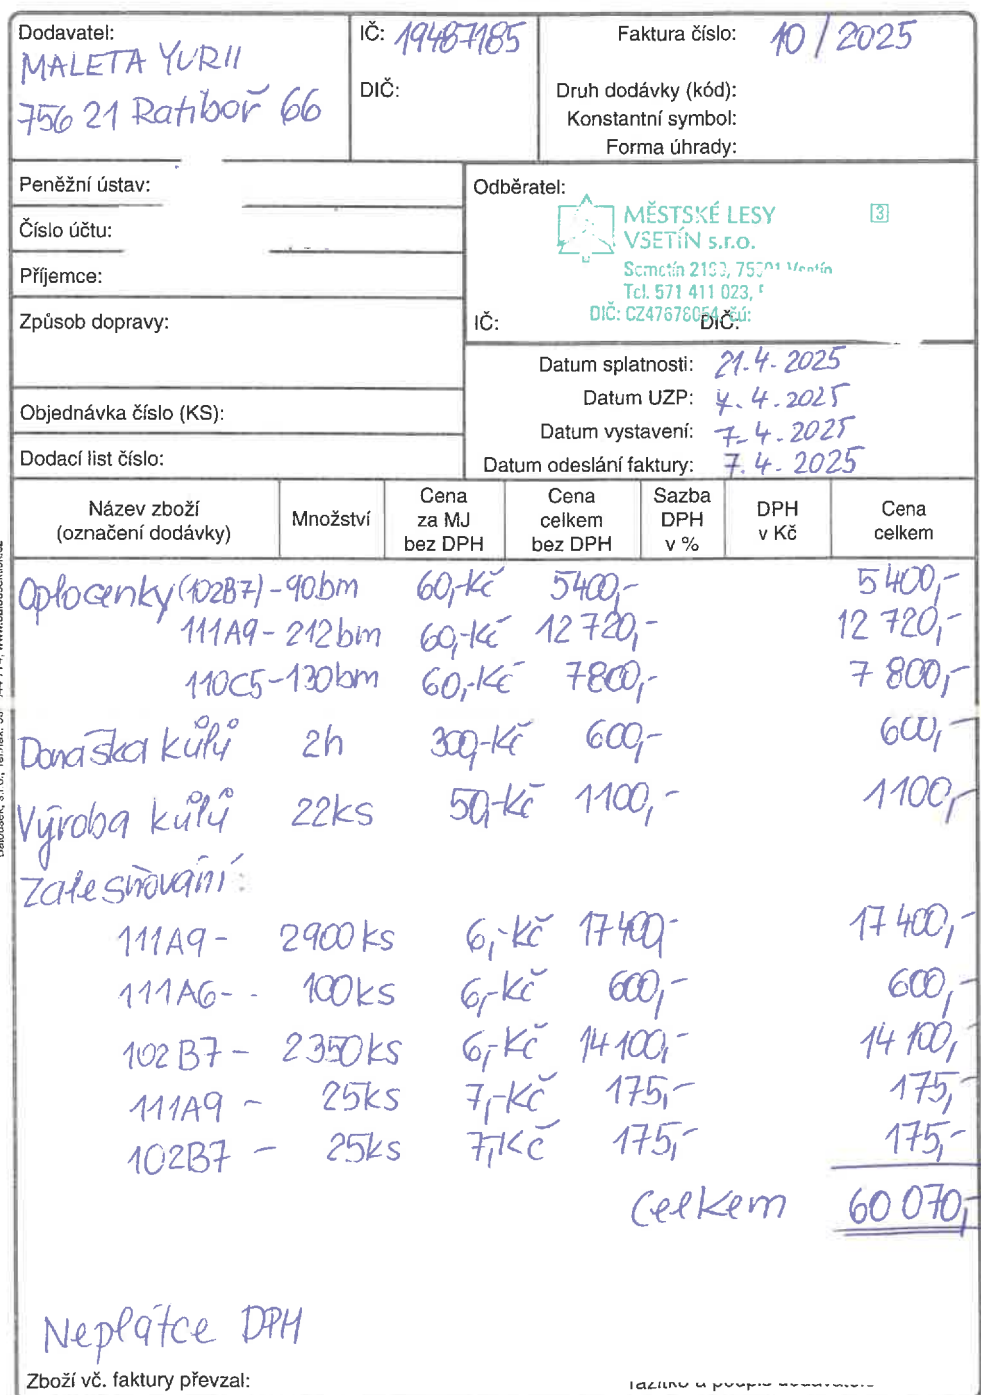 Dodavatel:
MALETA YURII
756 21 Ratiboř 66
IČ: 19487185
DIČ:
Faktura číslo: 10/2025
Druh dodávky (kód):
Konstantní symbol:
Forma úhrady:
Peněžní ústav:
Číslo účtu:
Příjemce:
Způsob dopravy:
Objednávka číslo (KS):
Dodací list číslo:
Odběratel:
MĚSTSKÉ LESY 3
VSETÍN s.r.o.
Tel. 571 411 023,
DIČ: CZ47678054
IČ: DIČ:
Datum splatnosti: 21.4.2025
Datum UZP: 7.4.2025
Datum vystavení: 7.4.2025
Datum odeslání faktury: 7.4.2025
Název zboží (označení dodávky)
Množství
Cena za MJ bez DPH
Cena celkem bez DPH
Sazba DPH v %
DPH v Kč
Cena celkem
Oplocenky (102B7) - 90bm 60,-Kč 5400,- 5400,-
111A9 - 212bm 60,-Kč 12 720,- 12 720,-
110C5 - 130bm 60,-Kč 7800,- 7 800,-
Donáška kůlů 2h 300,-Kč 600,- 600,-
Výroba kůlů 22ks 50,-Kč 1100,- 1100,-
Zalesňování:
111A9 - 2900ks 6,-Kč 17400,- 17 400,-
111A6 - - 100ks 6,-Kč 600,- 600,-
102B7 - 2350ks 6,-Kč 14100,- 14 100,-
111A9 - 25ks 7,-Kč 175,- 175,-
102B7 - 25ks 7,-Kč 175,- 175,-
Celkem 60 070,-
Neplátce DPH
Zboží vč. faktury převzal: